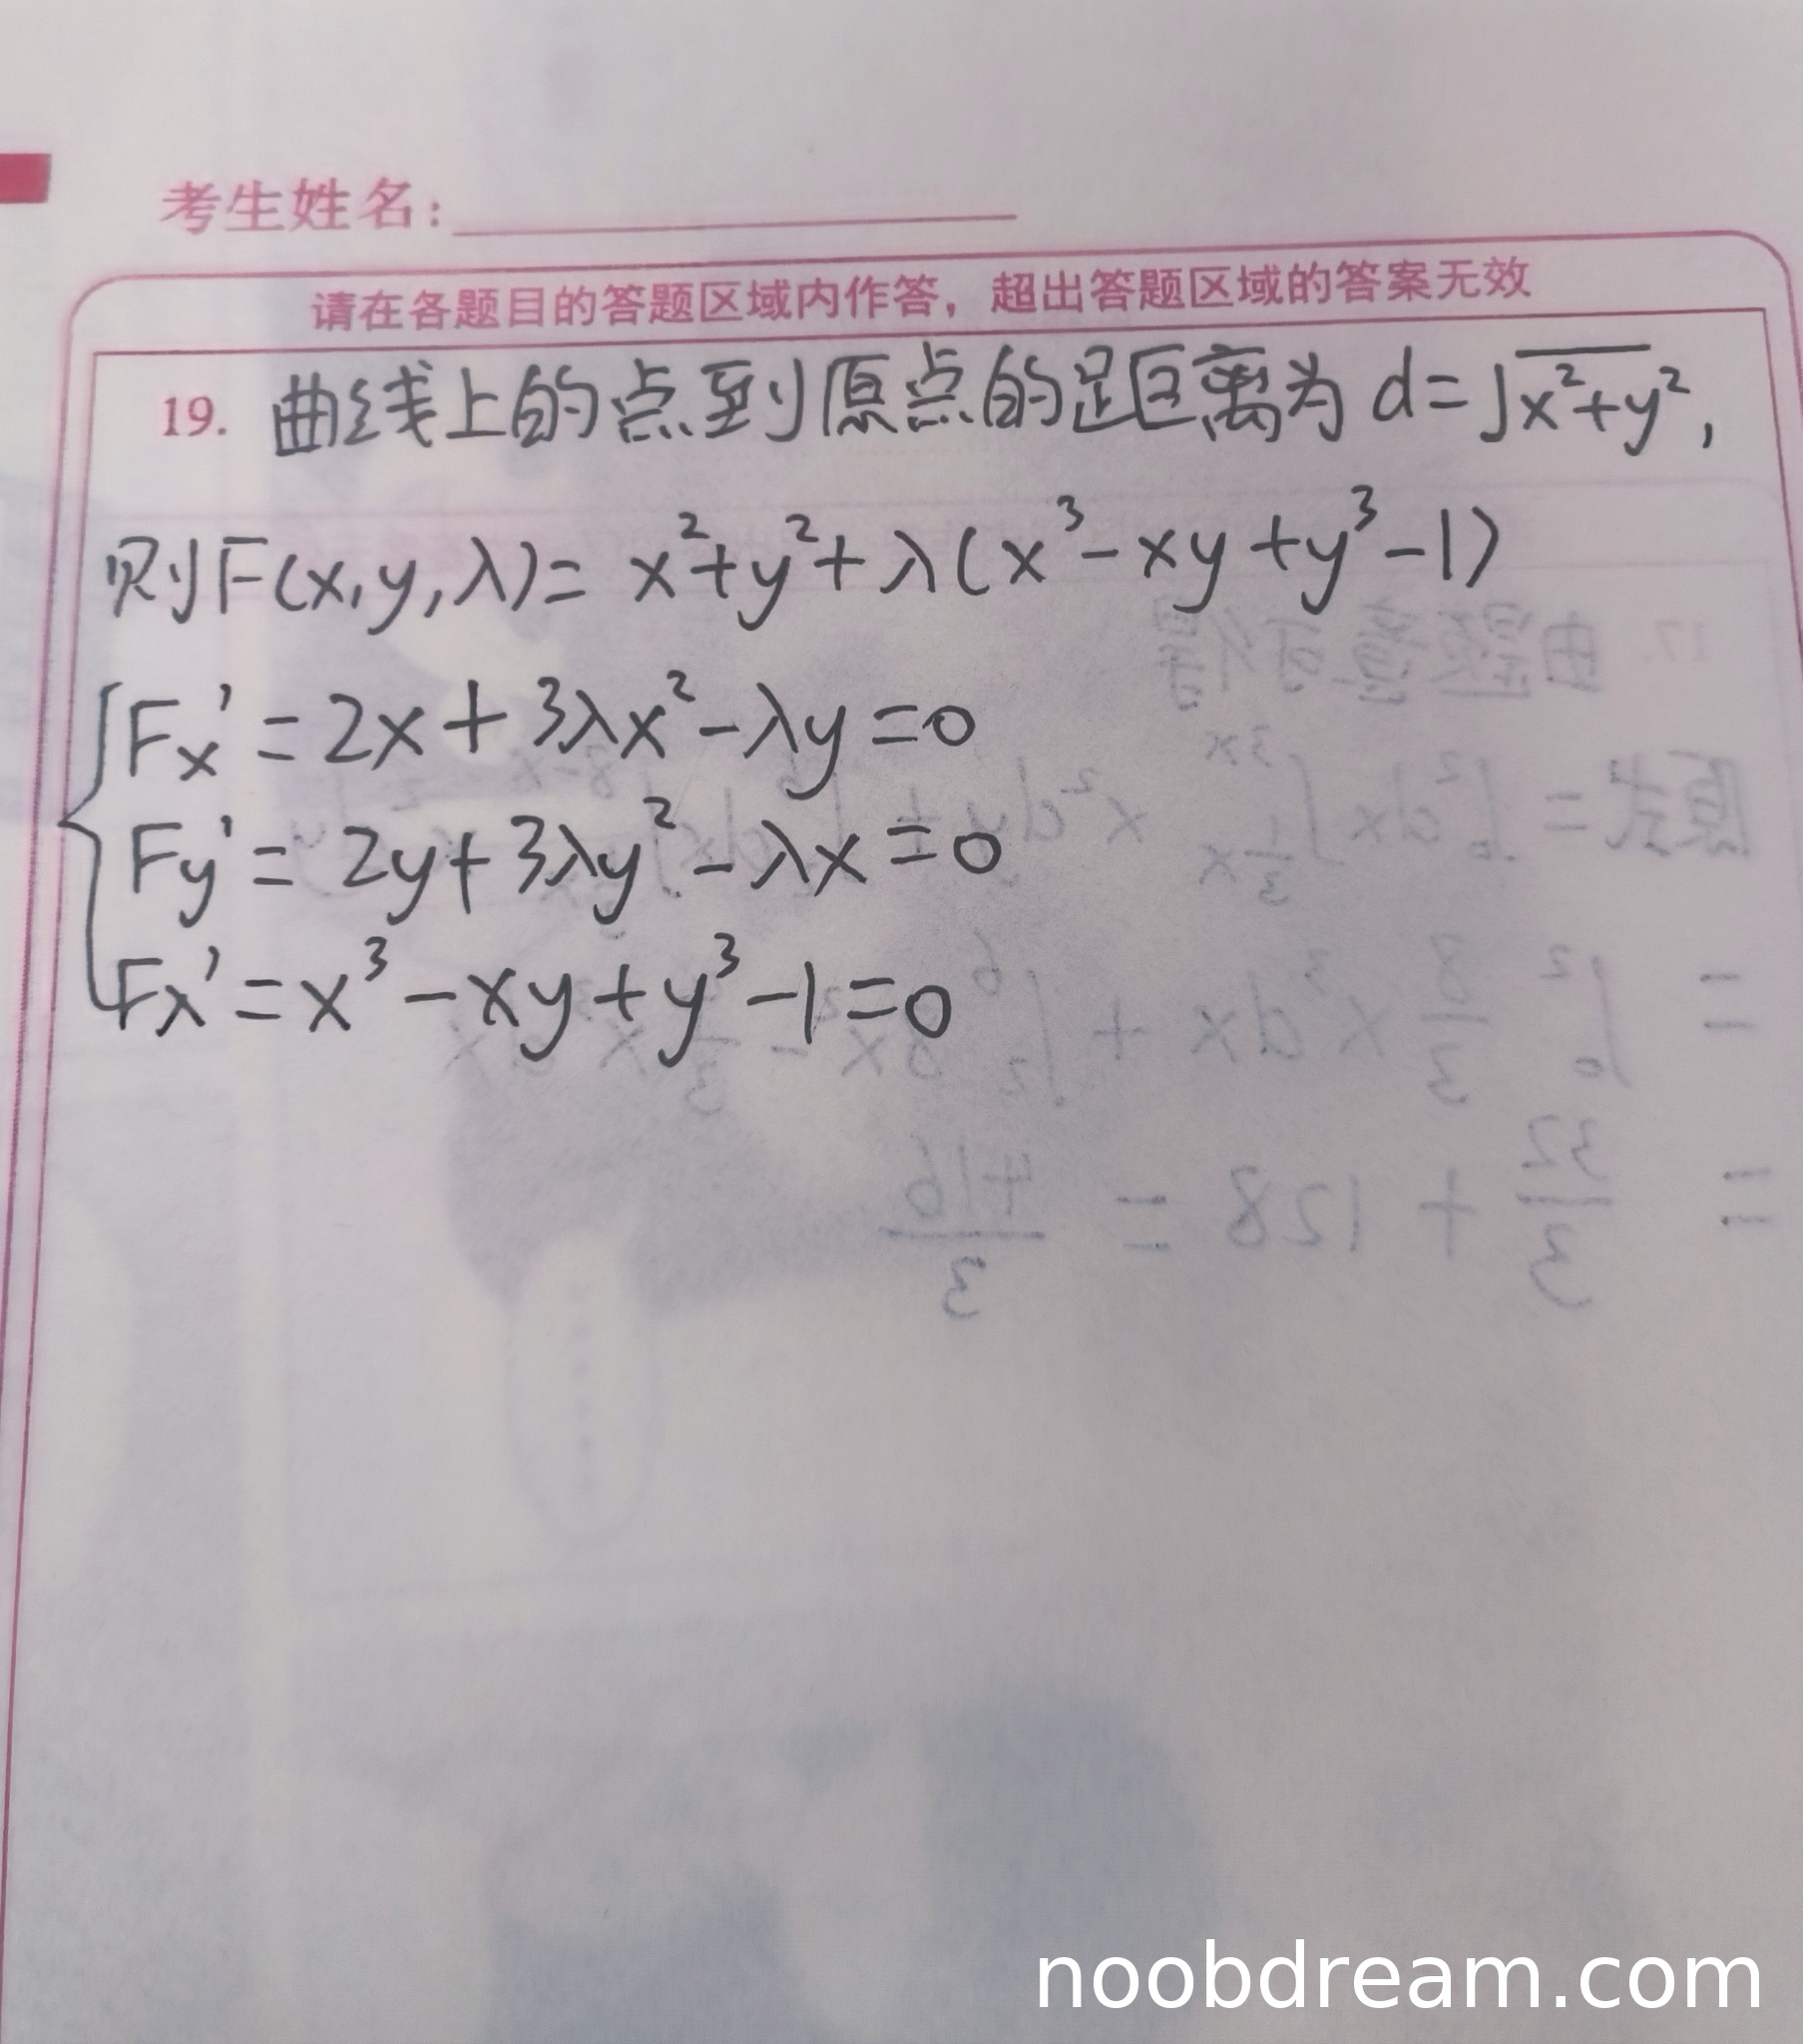 考生姓名:
请在各题目的答题区域内作答，超出答题区域的答案无效
19. 曲线上的点到原点的距离为 d=√x²+y²,
则F(x,y,λ)= x²+y²+λ(x³-xy+y³-1)
Fx'=2x+3λx²-λy=0
Fy'=2y+3λy²-λx=0
Fλ'=x³-xy+y³-1=0
17. 由题意可得
noobdream.com